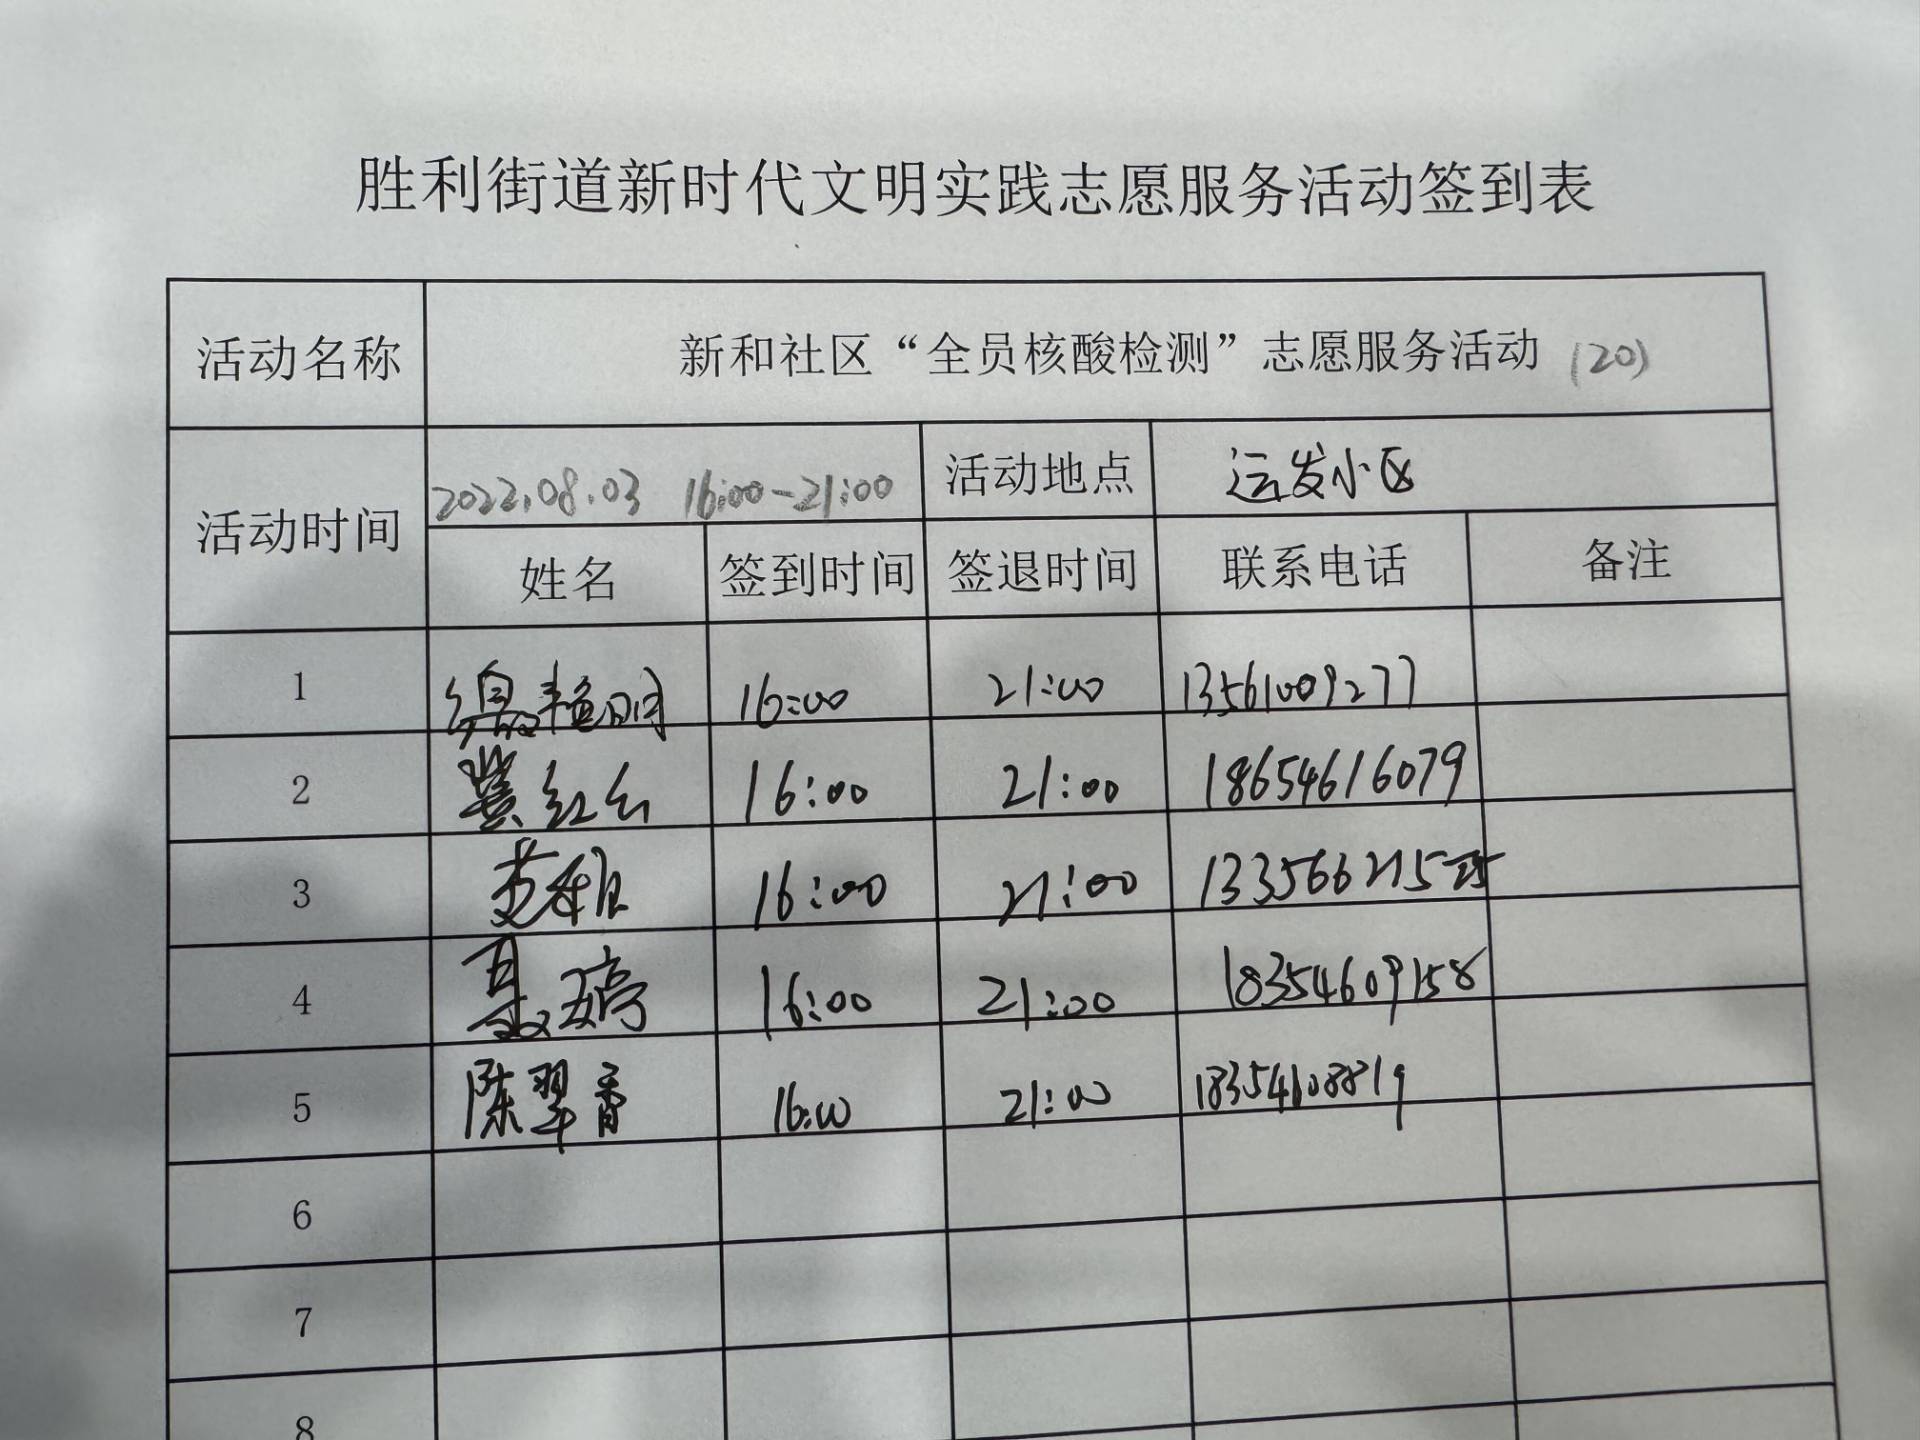 胜利街道新时代文明实践志愿服务活动签到表
活动名称 新和社区“全员核酸检测”志愿服务活动 (20)
活动时间 2022.08.03 16:00-21:00 活动地点 运发小区
姓名 签到时间 签退时间 联系电话 备注
1 16:00 21:00 13561009277
2 冀红云 16:00 21:00 18654616079
3 16:00 21:00
4 聂婷 16:00 21:00 18354609158
5 陈翠香 16:00 21:00 18354608819
6
7
8